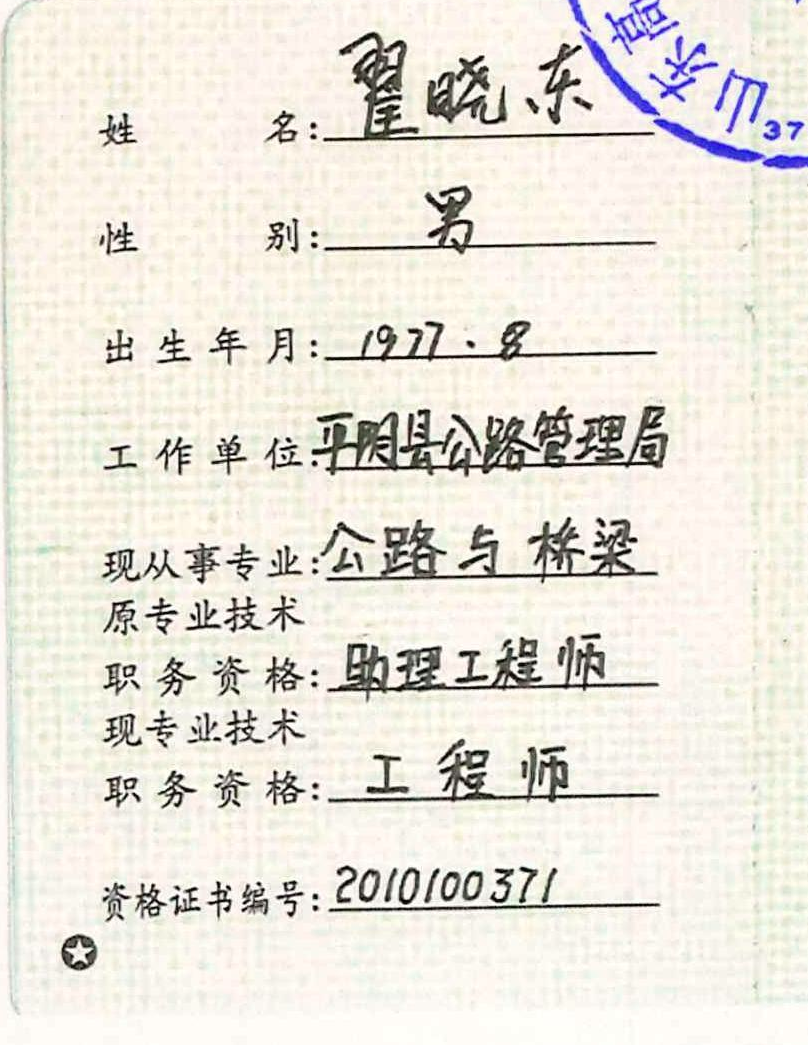 山东高
37
姓名:翟晓东
性别:男
出生年月:1977.8
工作单位:平阴县公路管理局
现从事专业:公路与桥梁
原专业技术
职务资格:助理工程师
现专业技术
职务资格:工程师
资格证书编号:2010100371